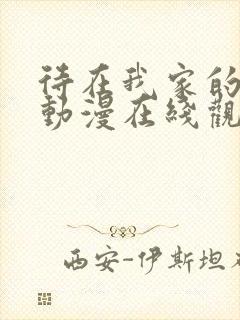 待在我家的
動漫在綫觀
西安-伊斯坦